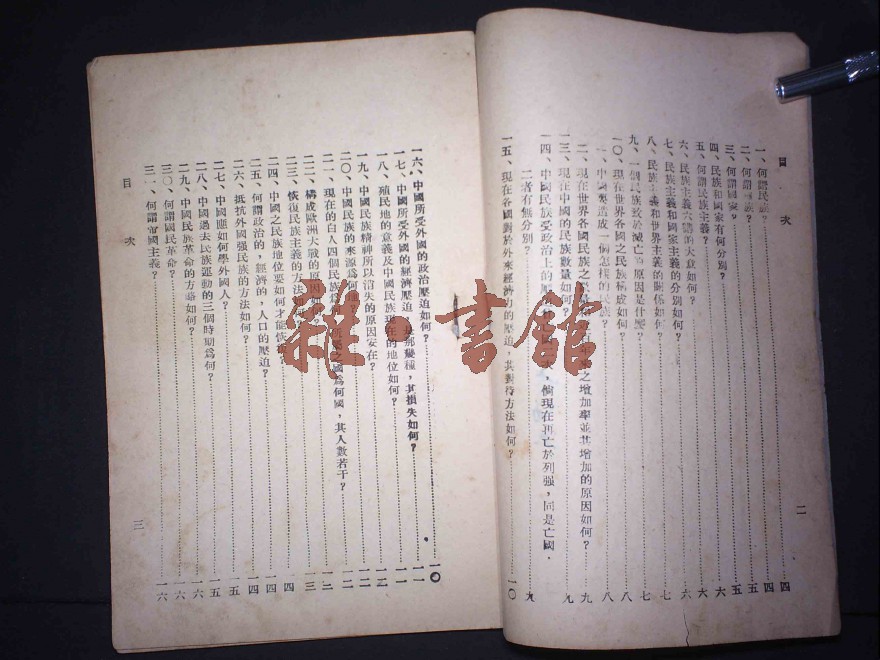 目次
一、何謂民族?四
二、何謂種族?四
三、何謂國家?五
四、民族和國家有何分別?五
五、何謂民族主義?六
六、民族主義六講的大意如何?六
七、民族主義和國家主義的分別如何?七
八、民族主義和世界主義的關係如何?七
九、一個民族致於滅亡的原因是什麼?八
一〇、現在世界各國之民族構成如何?八
一一、中國製造成一個怎樣的民族?八
一二、現在世界各國民族之之增加率並其增加的原因如何?九
一三、現在中國的民族數量如何?九
一四、中國民族受政治上的壓,倘現在再亡於列强,同是亡國,
二者有無分別?九
一五、現在各國對於外來經濟力的壓迫,其對待方法如何?一〇
二
一六、中國所受外國的政治壓迫如何?一〇
一七、中國所受外國的經濟壓迫,其損失如何?一一
一八、殖民地的意義及中國民族現在的地位如何?一一
一九、中國民族精神所以消失的原因安在?一二
二〇、中國民族的來源爲何?一二
二一、現在的白人四個民族之國爲何國,其人數若干?一二
二二、構成歐洲大戰的原因如何?一三
二三、恢復民族主義的方法如何?四
二四、中國之民族地位要如何才能恢復?四
二五、何謂政治的,經濟的,人口的壓迫?四
二六、抵抗外國强民族的方法如何?五
二七、中國應如何學外國人?五
二八、中國過去民族運動的三個時期爲何?六
二九、中國民族革命的方略如何?六
三〇、何謂國民革命?六
三一、何謂帝國主義?一六
目次
三
雜·書館